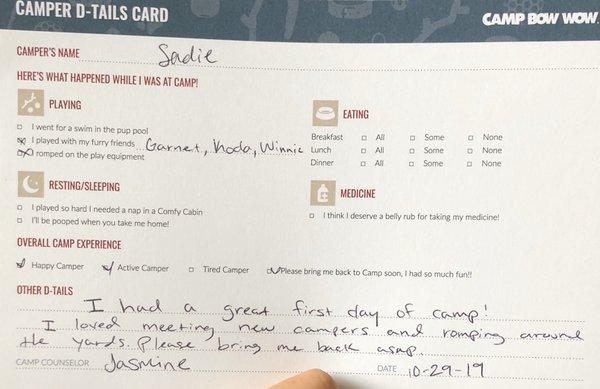 CAMPER D-TAILS CARD
CAMP BOW WOW
CAMPER'S NAME Sadie
HERE'S WHAT HAPPENED WHILE I WAS AT CAMP!
PLAYING
I went for a swim in the pup pool
I played with my furry friends Garnet, Koda, Winnie
I romped on the play equipment
EATING
Breakfast All Some None
Lunch All Some None
Dinner All Some None
RESTING/SLEEPING
I played so hard I needed a nap in a Comfy Cabin
I'll be pooped when you take me home!
MEDICINE
I think I deserve a belly rub for taking my medicine!
OVERALL CAMP EXPERIENCE
Happy Camper Active Camper Tired Camper Please bring me back to Camp soon, I had so much fun!!
OTHER D-TAILS
I had a great first day of camp!
I loved meeting new campers and romping around
the yards. Please bring me back asap.
CAMP COUNSELOR Jasmine DATE 10-29-19